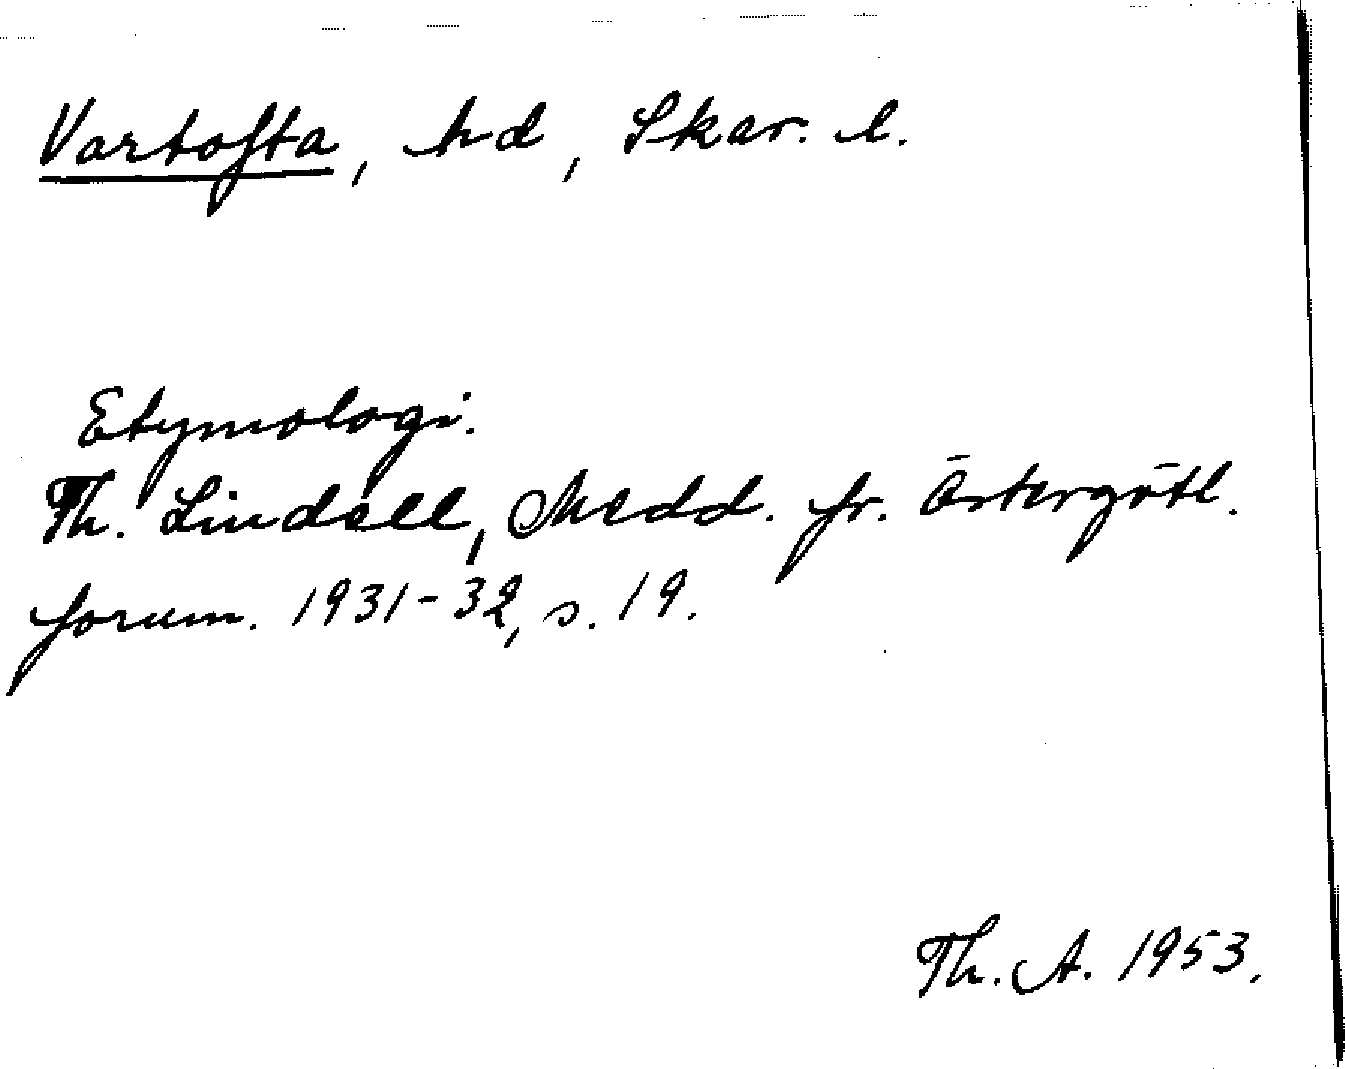 Vartofta, hd, Skar. l.
Etymologi.
Th. Lindell, Medd. fr. Östergötl.
fornm. 1931-32, s. 19.
Th. A. 1953.